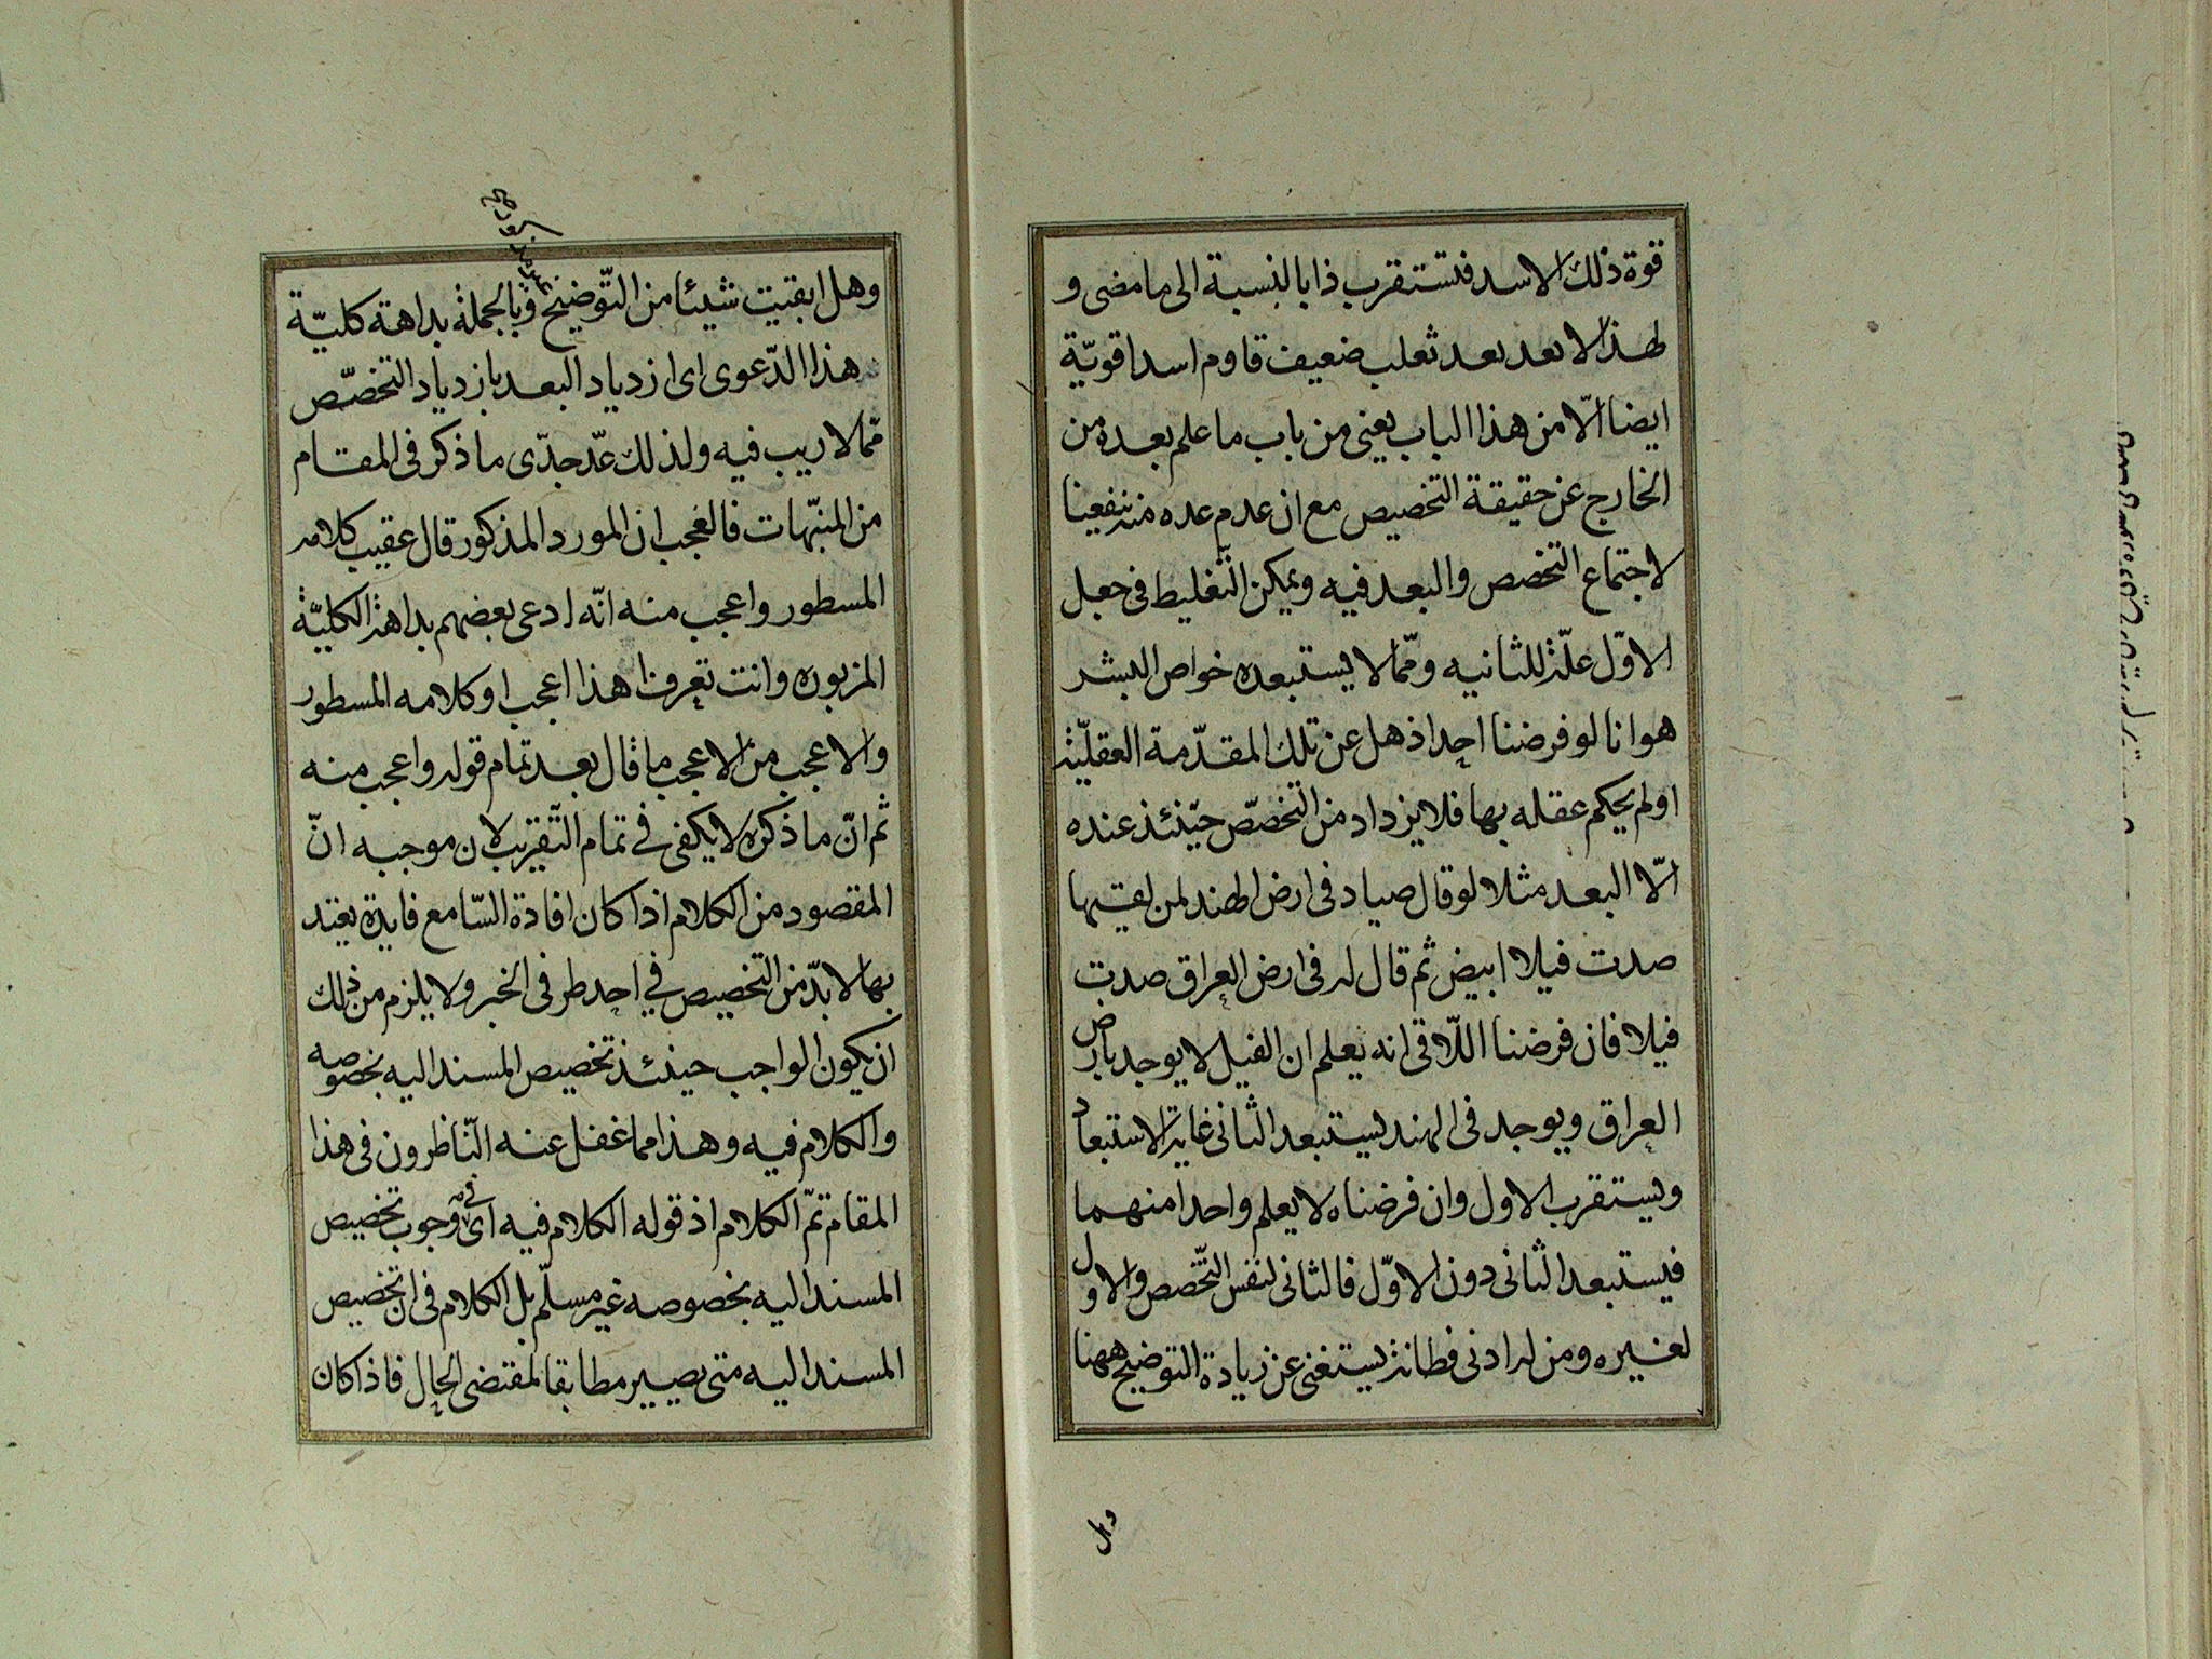 قوة ذلك الاسد فتستقرب ذا بالنسبة الى ما مضى و
لهذا لا بعد بعد ثعلب ضعيف قاوم اسدا قويّة
ايضا الّا من هذا الباب يعنى من باب ما علم بعده من
الخارج عن حقيقة التخصيص مع ان عدم عده منه ينفعنا
لاجتماع التخصص والبعد فيه ويمكن التّغليط فى جعل
الاوّل علّة للثانيه وممّا لا يستبعده خواص البشر
هو انا لو فرضنا احدا ذهل عن تلك المقدّمة العقليّة
اولم يحكم عقله بها فلا يزداد من التخصّص حينئذ عنده
الّا البعد مثلا لو قال صياد فى ارض الهند لمن لقيها
صدت فيلا ابيض ثم قال له فى ارض العراق صدت
فيلا فان فرضنا اللّاقى انه يعلم ان الفيل لا يوجد بارض
العراق ويوجد فى الهند يستبعد الثانى غاية الاستبعاد
ويستقرب الاول وان فرضناه لا يعلم واحدا منهما
فيستبعد الثانى دون الاوّل فالثانى لنفس التّخصص والاول
لغيره ومن له ادنى فطانة يستغنى عن زيادة التوضيح ههنا
وهل
وهل ابقيت شيئا من التّوضيح وبالجملة بداهة كليّة
هذا الدّعوى اى ازدياد البعد بازدياد التخصّص
ممّا لا ريب فيه ولذلك عدّ جدّى ما ذكر فى المقام
من المنبّهات فالعجب ان المورد المذكور قال عقيب كلامه
المسطور واعجب منه انّه ادعى بعضهم بداهة الكليّة
المزبوره وانت تعرف ا هذا اعجب او كلامه المسطور
والاعجب من الاعجب ما قال بعد تمام قوله واعجب منه
ثم انّ ما ذكره لا يكفى فى تمام التّقريب لان موجبه انّ
المقصود من الكلام اذا كان افادة السّامع فايدة يعتد
بها لا بدّ من التخصيص فى احد طرفى الخبر ولا يلزم من ذلك
ان يكون الواجب حينئذ تخصيص المسند اليه بخصوصه
والكلام فيه وهذا مما غفل عنه النّاظرون فى هذا
المقام تمّ الكلام اذ قوله الكلام فيه اى فى وجوب تخصيص
المسند اليه بخصوصه غير مسلّم بل الكلام فى ان تخصيص
المسند اليه متى يصير مطابقا لمقتضى الحال فاذا كان